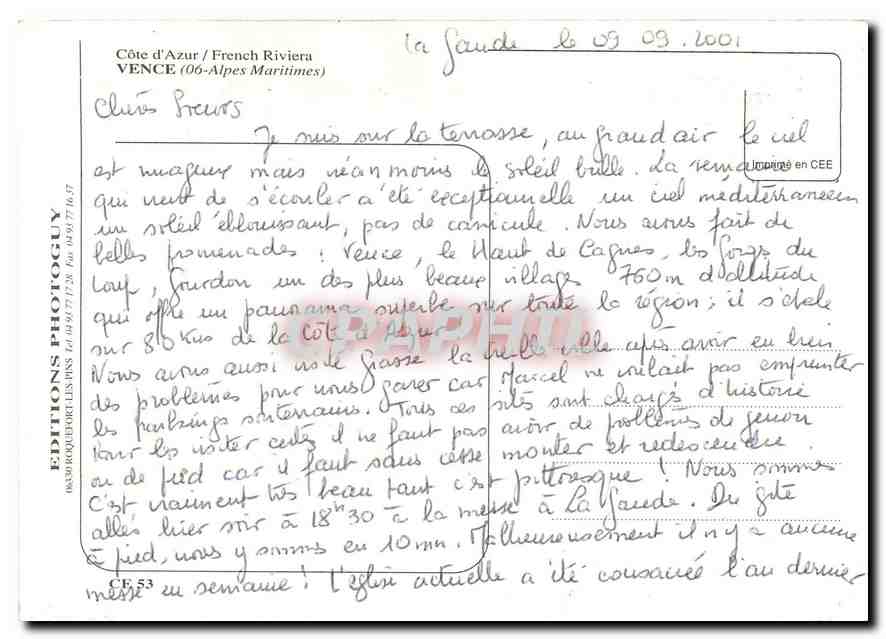 la Gaude le 09 09. 2001
Côte d'Azur / French Riviera
VENCE (06-Alpes Maritimes)
Imprimé en CEE
EDITIONS PHOTOGUY
06330 ROQUEFORT-LES-PINS Tel 04 93 77 17 28 Fax 04 93 77 16 37
Je suis sur la terrasse, au grand air le ciel
est nuageux mais néanmoins le soleil brille. La semaine
qui vient de s'écouler a été exceptionnelle un ciel méditerranéen
un soleil éblouissant, pas de canicule. Nous avons fait de
belles promenades : Vence, le Haut de Cagnes, les Gorges du
Loup, Gourdon un des plus beaux villages 760m d'altitude
qui offre un panorama superbe sur toute la région; il s'étale
sur 80 Kms de la Côte d'Azur.
Nous avons aussi visité Grasse la vieille ville après avoir eu bien
des problèmes pour nous garer car Marcel ne voulait pas emprunter
les parkings souterrains. Tous ces sites sont chargés d'histoire
Pour les visiter certes il ne faut pas avoir de problèmes de genou
ou de pied car il faut sans cesse monter et redescendre.
C'est vraiment très beau tant c'est pittoresque ! Nous sommes
allés hier soir à 18h30 à la messe à La Gaude. Du gîte
à pied, nous y sommes en 10mn. Malheureusement il n'y a aucune
messe en semaine ! L'église actuelle a été consacrée l'an dernier
CE 53
CPAPHIL